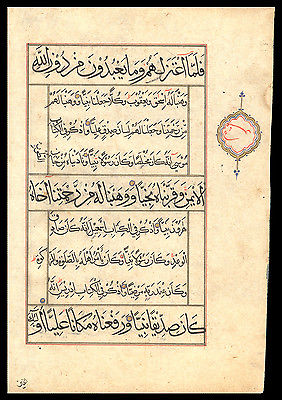 فَلَمَّا اعْتَزَلَهُمْ وَمَا يَعْبُدُونَ مِنْ دُونِ اللّٰهِ
وَهَبْنَا لَهُ اِسْحٰقَ وَيَعْقُوبَ وَكُلًّا جَعَلْنَا نَبِيًّا وَوَهَبْنَا لَهُمْ
مِنْ رَحْمَتِنَا وَجَعَلْنَا لَهُمْ لِسَانَ صِدْقٍ عَلِيًّا وَاذْكُرْ فِي الْكِتَابِ
مُوسٰى اِنَّهُ كَانَ مُخْلَصًا وَكَانَ رَسُولًا نَبِيًّا وَنَادَيْنَاهُ مِنْ جَانِبِ الطُّورِ
الْاَيْمَنِ وَقَرَّبْنَاهُ نَجِيًّا وَوَهَبْنَا لَهُ مِنْ رَحْمَتِنَا اَخَاهُ
هٰرُونَ نَبِيًّا وَاذْكُرْ فِي الْكِتَابِ اِسْمٰعِيلَ اِنَّهُ كَانَ صَادِقَ
الْوَعْدِ وَكَانَ رَسُولًا نَبِيًّا وَكَانَ يَأْمُرُ اَهْلَهُ بِالصَّلٰوةِ وَالزَّكٰوةِ
وَكَانَ عِنْدَ رَبِّهِ مَرْضِيًّا وَاذْكُرْ فِي الْكِتَابِ اِدْرِيسَ اِنَّهُ
كَانَ صِدِّيقًا نَبِيًّا وَرَفَعْنَاهُ مَكَانًا عَلِيًّا